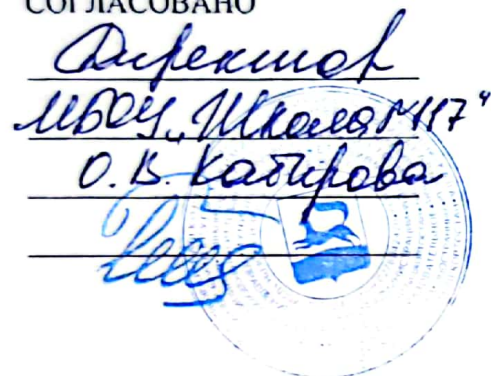 СОГЛАСОВАНО
Директор
МБОУ „Школа №117"
О. В. Кабирова